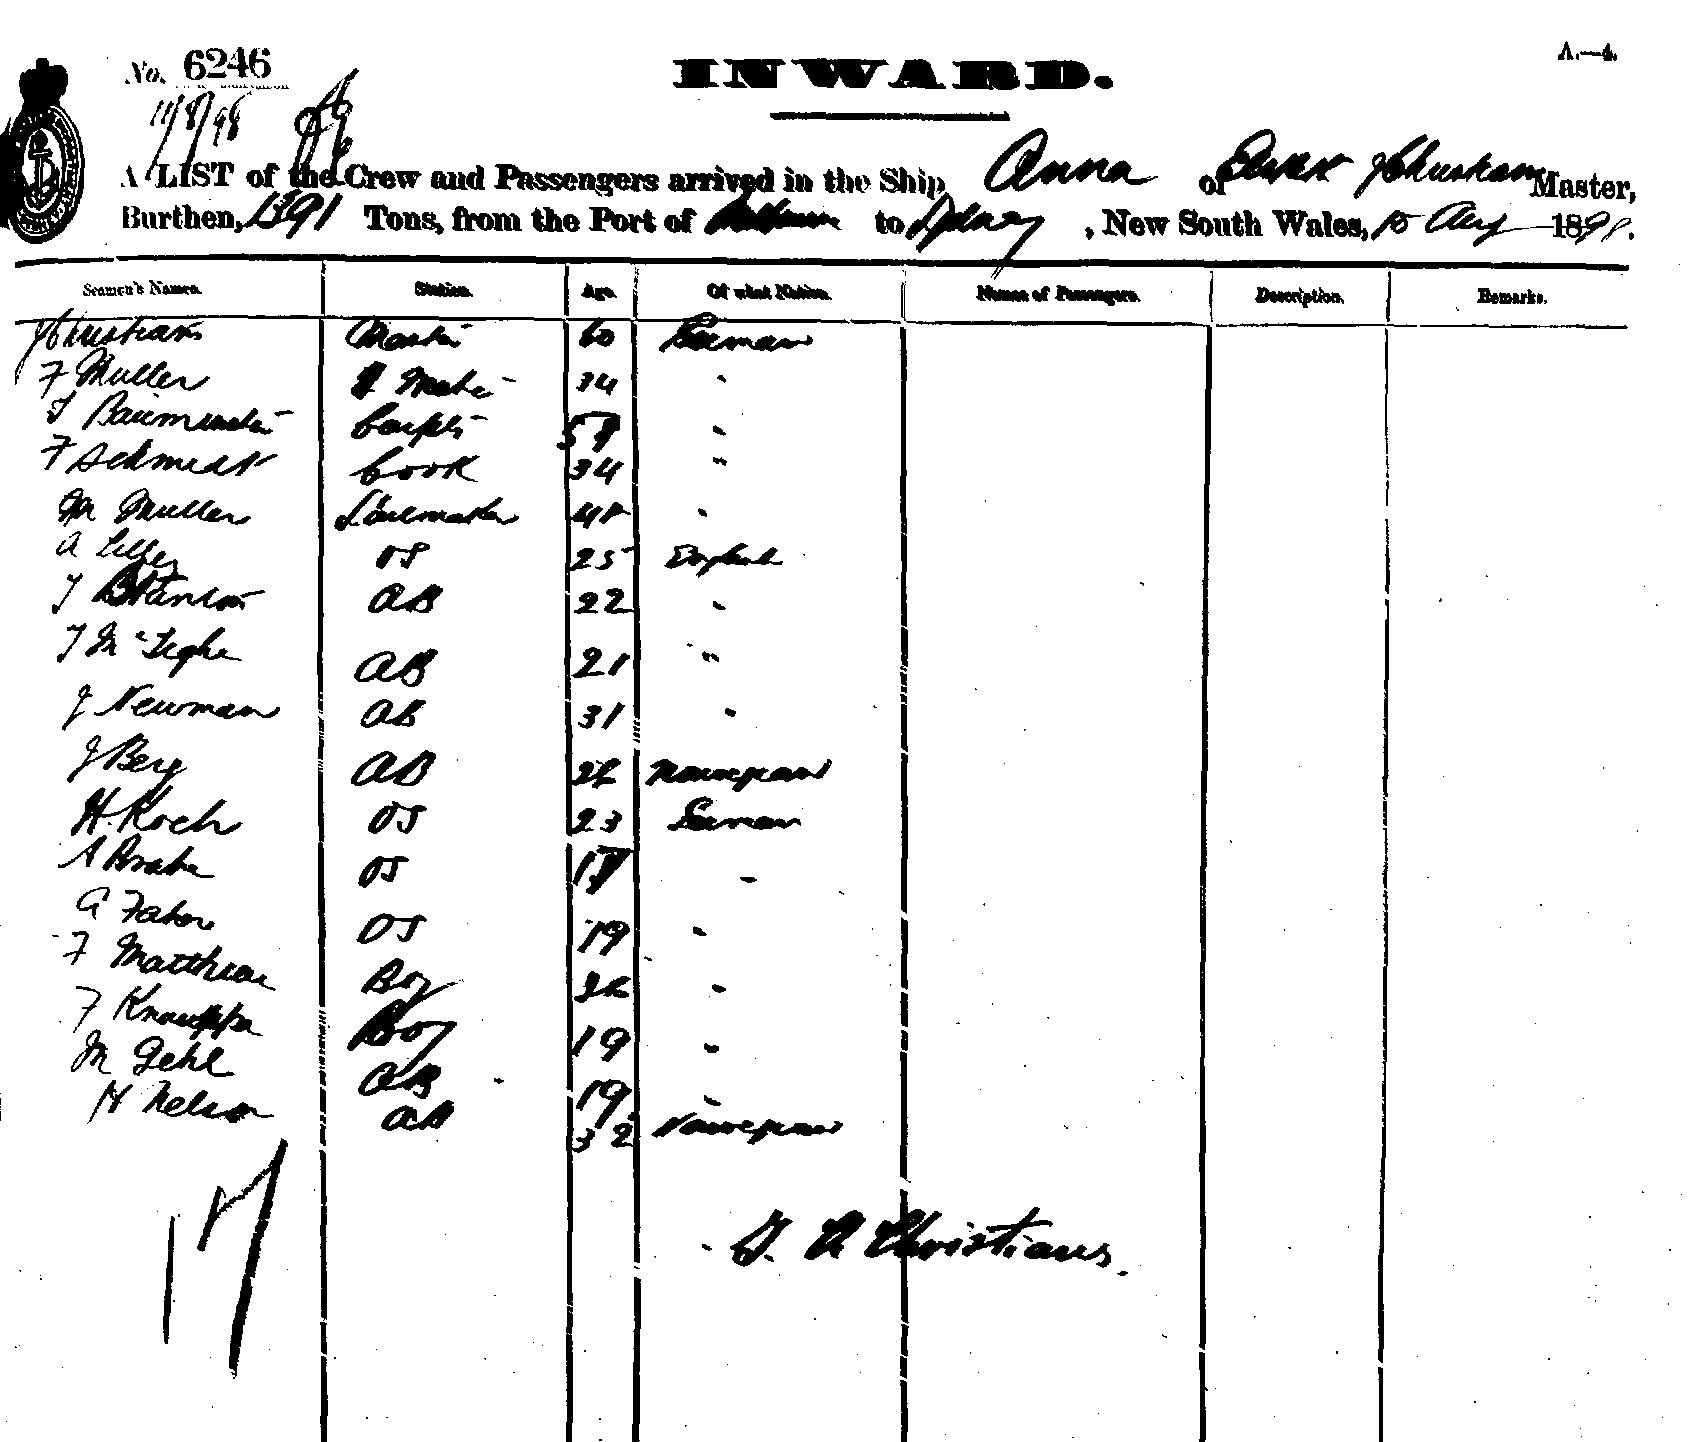 A.—4.
No. 6246
INWARD.
11/8/98
A LIST of the Crew and Passengers arrived in the Ship Anna of J Christians Master,
Burthen, 1391 Tons, from the Port of to Sydney, New South Wales, 10 Aug 1898.
Seamen's Names. Station. Age. Of what Nation. Names of Passengers. Description. Remarks.
J Christians Master 60 German
F Muller 1 Mate 34 "
Carptr "
F Schmidt Cook 34 "
M Muller Sailmaker "
A OS 25 English
T Stanton AB 22 "
T McTighe AB 21 "
J Newman AB 31 "
J Berg AB Norwegian
H. Koch OS 23 German
A Brake OS "
G Faber OS 19 "
F Matthiae Boy "
F Boy 19 "
M Gehl AB 19 "
H Nelson AB 32 Norwegian
17
J. A Christians.